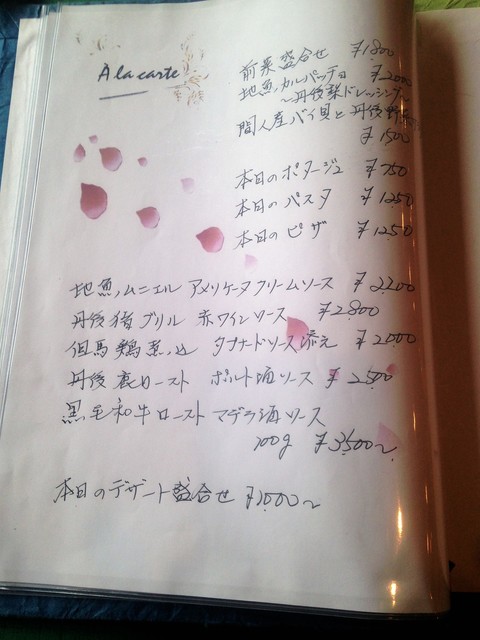 À la carte
前菜盛合せ ¥1800
地魚カルパッチョ ¥2000
〜丹後梨ドレッシング〜
間人産バイ貝と丹後野菜
¥1500
本日のポタージュ ¥750
本日のパスタ ¥1250
本日のピザ ¥1250
地魚ムニエル アメリケーヌクリームソース ¥2200
丹後猪グリル 赤ワインソース ¥2800
但馬鶏煮込 タプナードソース添え ¥2000
丹後鹿ロースト ポルト酒ソース ¥2500
黒毛和牛ロースト マデラ酒ソース
100g ¥3500〜
本日のデザート盛合せ ¥1000〜